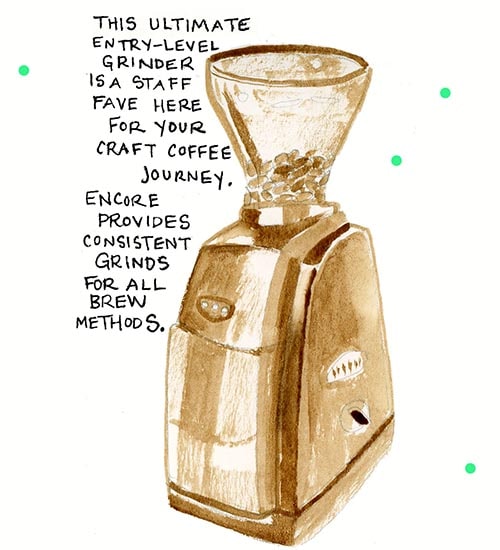 THIS ULTIMATE
ENTRY-LEVEL
GRINDER
IS A STAFF
FAVE HERE
FOR YOUR
CRAFT COFFEE
JOURNEY.
ENCORE
PROVIDES
CONSISTENT
GRINDS
FOR ALL
BREW
METHODS.